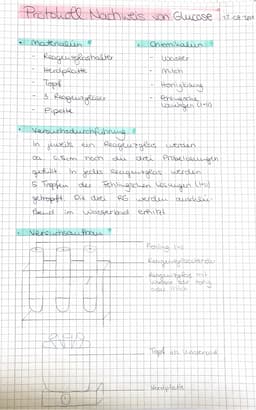 Protokoll Nachweis von Glucose
Materialien
- Reagenzglashalter
- Herdplatte
- Topf
- 3 Reagenzgläser
- Pipette
Chemikalien
- Wasser
- Milch
- Honig
- Fehlingsche Lösungen (I+II)
Versuchsdurchführung
In jeweils ein Reagenzglas werden
ca. hoch die drei Probelösungen
gefüllt. In jedes Reagenzglas werden
5 Tropfen der Fehlingschen Lösungen (I+II)
getropft. Die drei RG werden anschlie-
ßend im Wasserbad erhitzt.
Versuchsaufbau
Fehling I+II
Reagenzglasständer
Reagenzglas mit
Wasser oder Honig
oder Milch
Topf als Wasserbad
Herdplatte